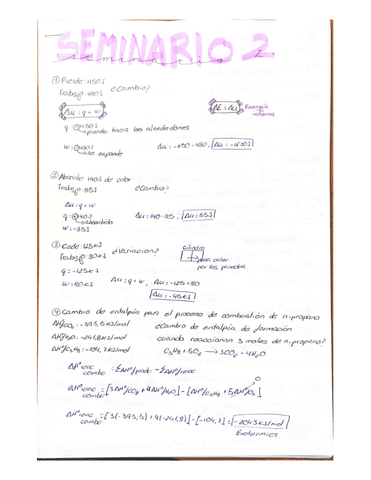 SEMINARIO 2
seminario
① Pierde: 1150J
Trabajo: 480J ¿Cambio?
Δu = q + w ΔE = Δu Energía interna
q: -1150J pierde hacia los alrededores
w: -480J se expande Δu = -1150 - 480,
② Absorbe 140J de calor
Trabajo: 85J ¿Cambio?
Δu = q + w
q: +140J absorbido Δu = 140 - 85; Δu = 55J
w = -85J
③ Cede: 125kJ ¿Variación? cilindro
Trabajo: 80kJ pasa calor por las paredes
q = -125kJ
w = 80kJ Δu = q + w, Δu = -125 + 80
Δu = -45kJ
④ Cambio de entalpía para el proceso de combustión de n-propano
ΔHºfCO₂ = -393,5 kJ/mol ¿Cambio de entalpía de formación
ΔHºfH₂O = -241,8 kJ/mol cuando reaccionan 3 moles de n-propano?
ΔHºfC₃H₈ = -104,7 kJ/mol C₃H₈ + 5O₂ → 3CO₂ + 4H₂O
ΔHºreac combo = ΣΔHºf prodo - ΣΔHºf reac
ΔHºreac combo = [3ΔHºfCO₂ + 4ΔHºfH₂O] - [ΔHºfC₃H₈ + 5ΔHºfO₂] 0
ΔHºreac combo = [3(-393,5) + 4(-241,8)] - [-104,7] = -2043 kJ/mol
Exotérmica